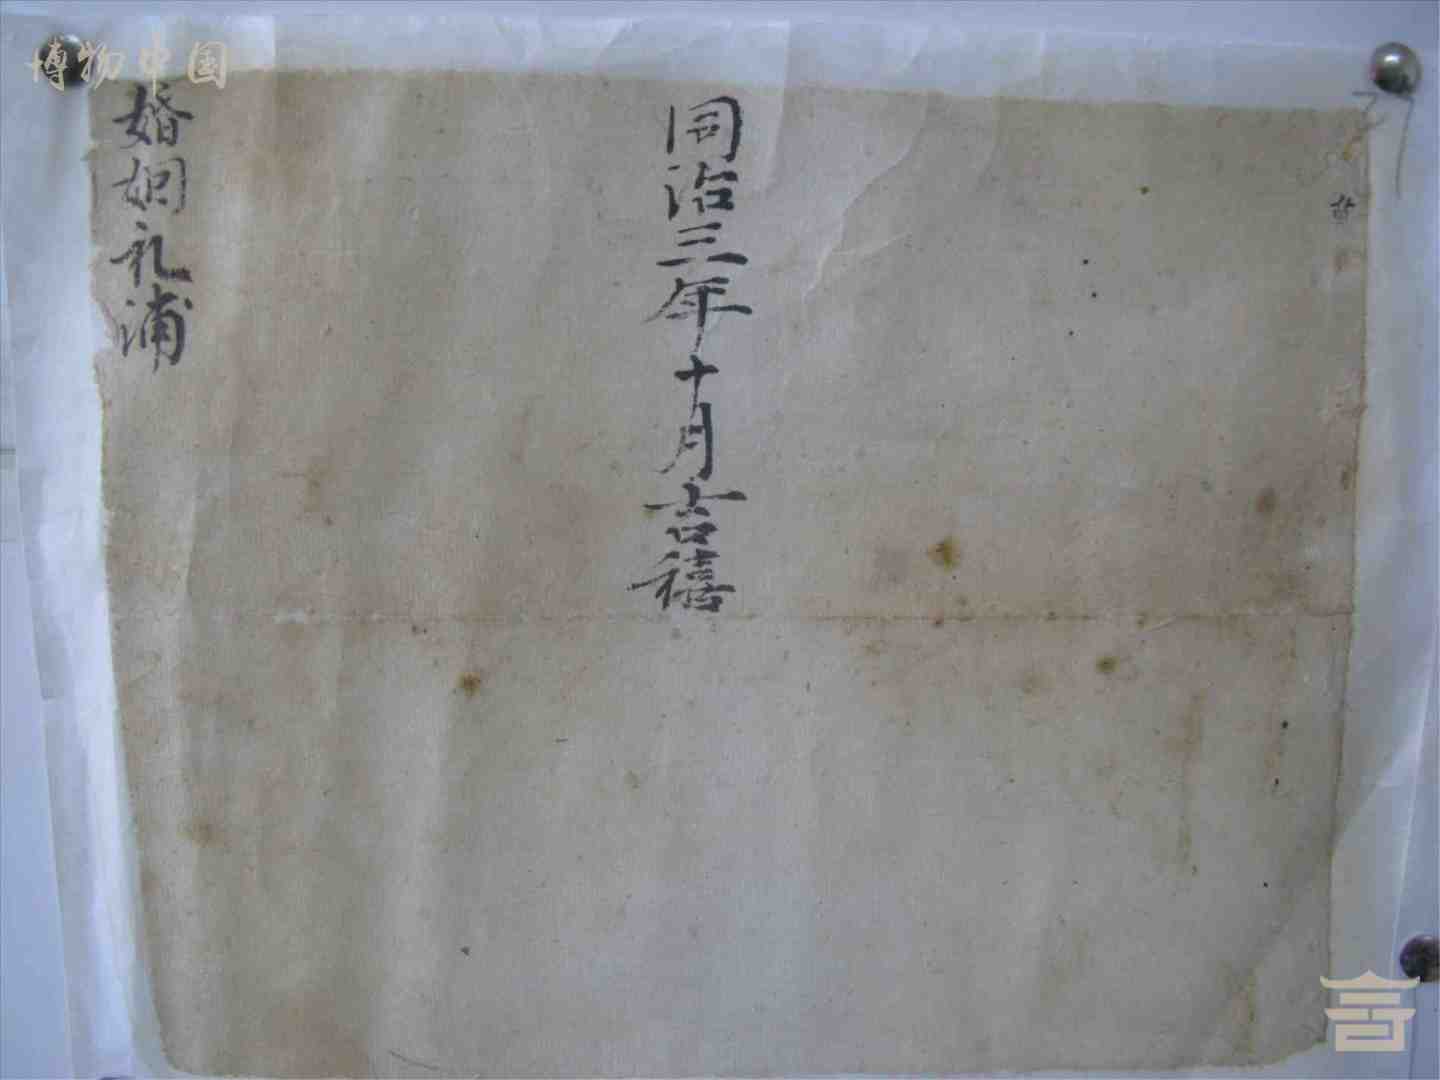 博物中国
同治三年十月吉禧
婚姻礼浦